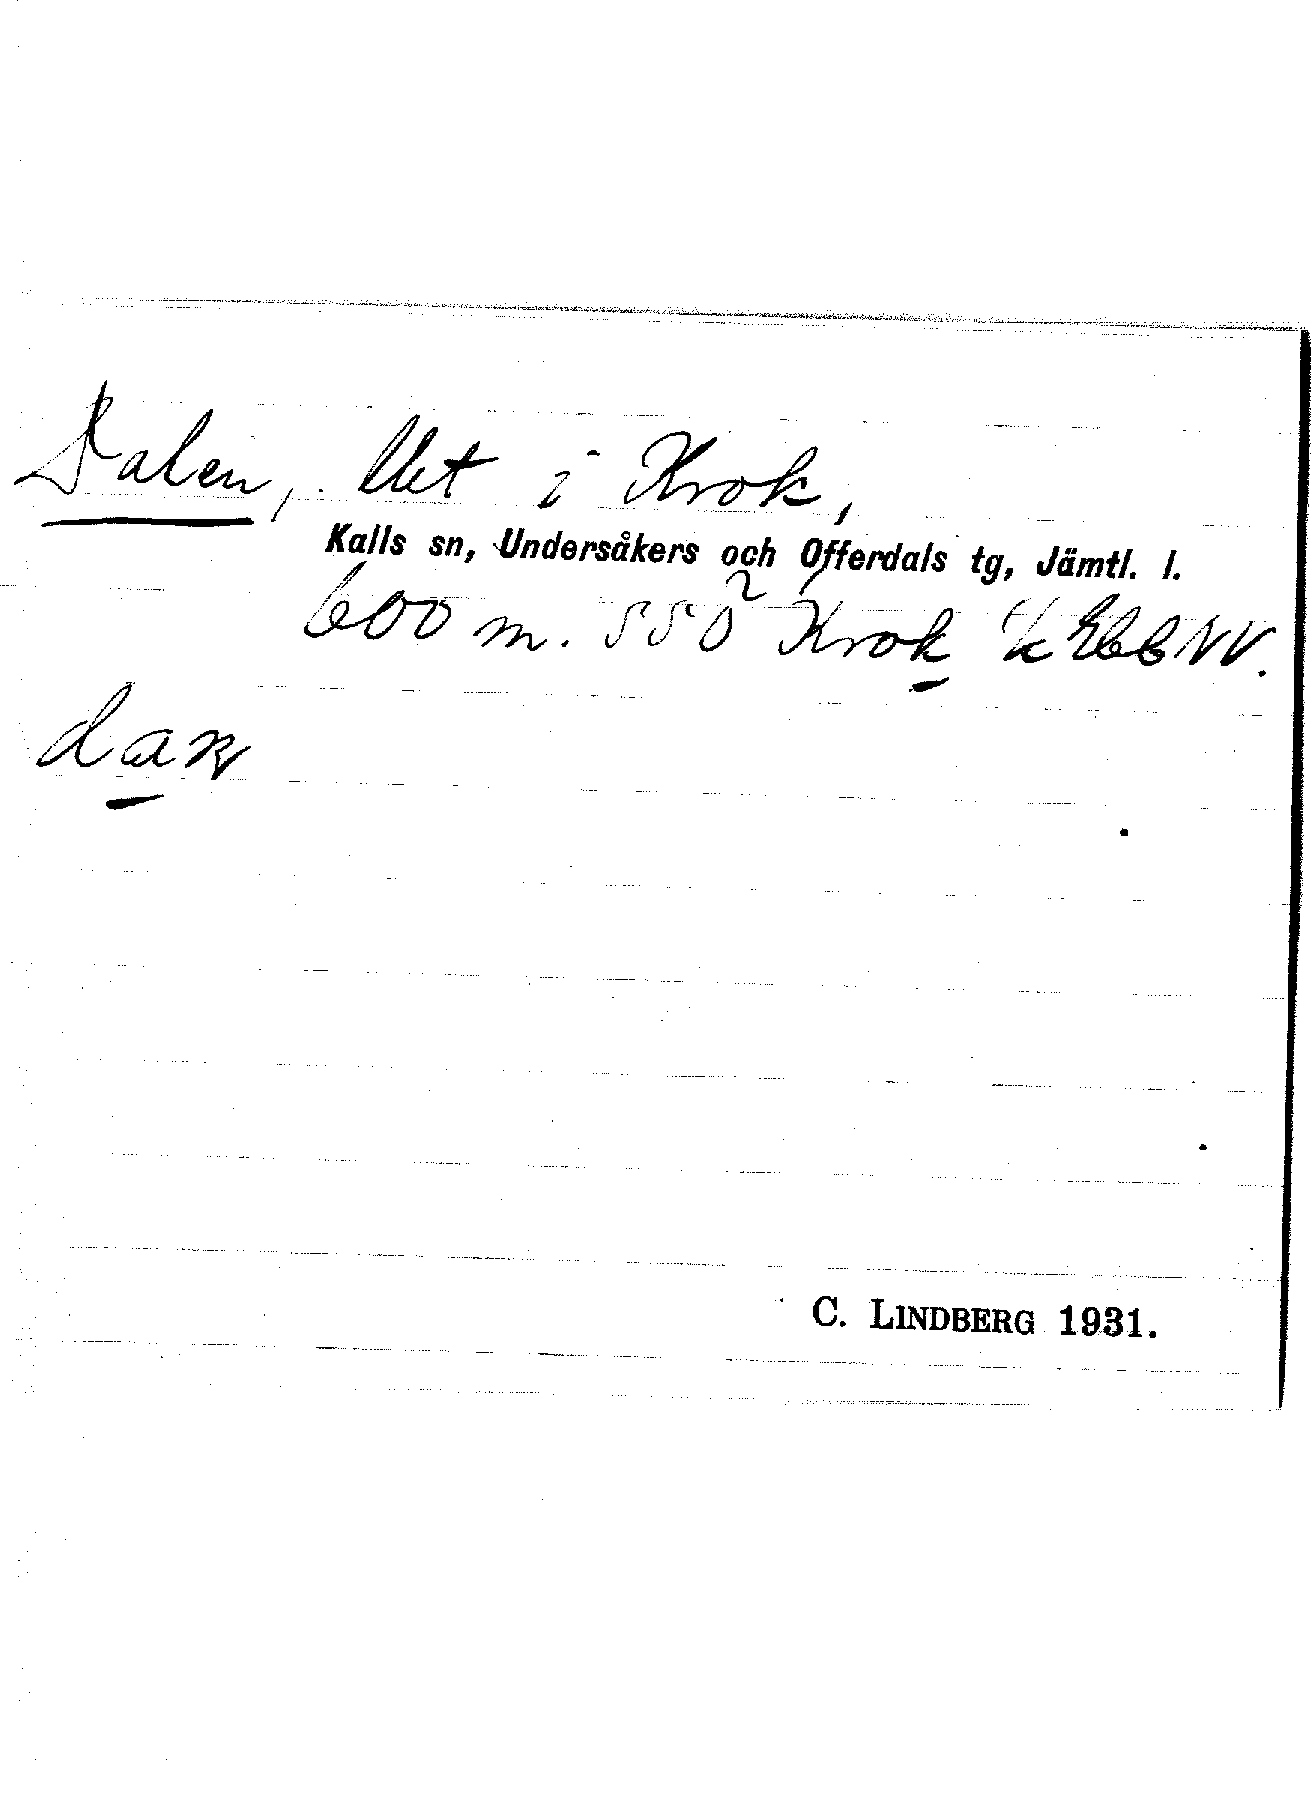 Dalen, lht i Krok,
Kalls sn, Undersåkers och Offerdals tg, Jämtl. l.
600 m. SSÖ Krok k NV.
dan
C. LINDBERG 1931.